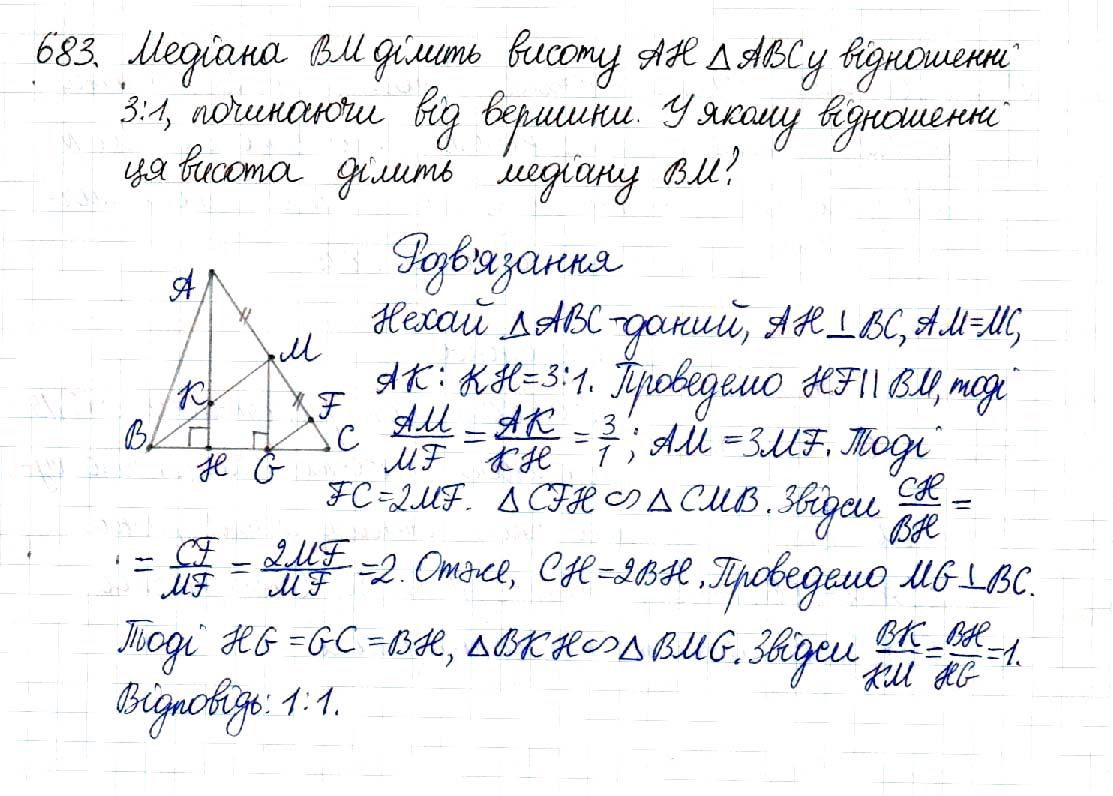 683. Медіана BM ділить висоту AH △ABC у відношенні
3:1, починаючи від вершини. У якому відношенні
ця висота ділить медіану BM?
Розв'язання
A
M
K
F
B
H
G
C
Нехай △ABC - даний, AH⊥BC, AM=MC,
AK : KH=3:1. Проведемо HF∥BM, тоді
AM/MF = AK/KH = 3/1; AM = 3MF. Тоді
FC=2MF. △CFH ∽ △CMB. Звідси CH/BH =
= CF/MF = 2MF/MF =2. Отже, CH=2BH. Проведемо MG⊥BC.
Тоді HG=GC=BH, △BKH∽△BMG. Звідси BK/KM=BH/HG=1.
Відповідь: 1:1.